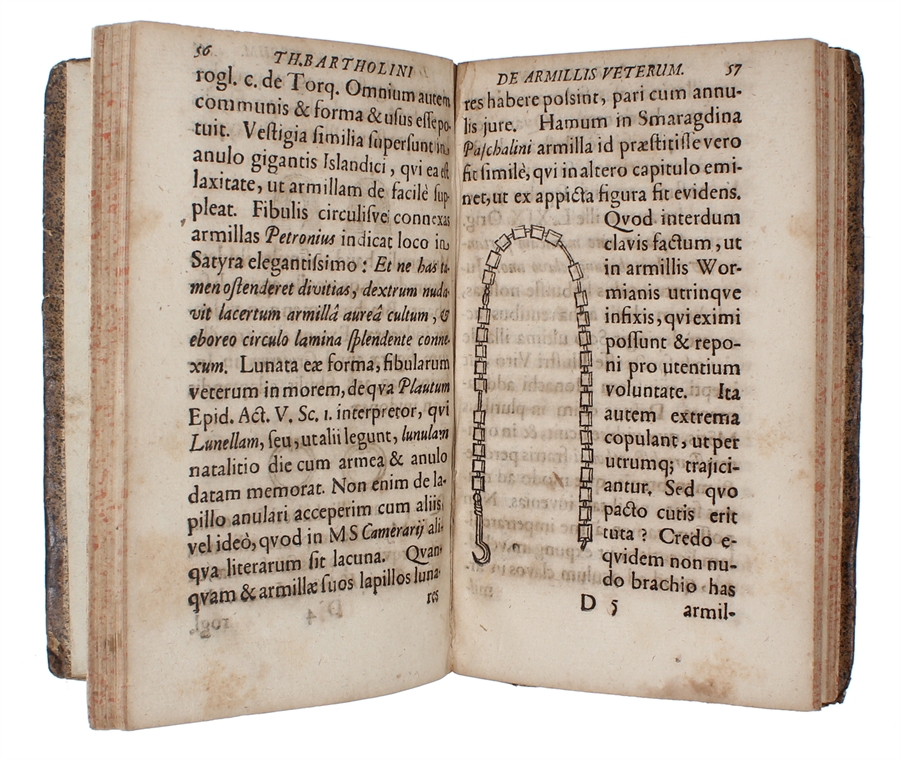 56
TH. BARTHOLINI
rogl. c. de Torq. Omnium autem
communis & forma & uſus eſſe po-
tuit. Veſtigia ſimilia ſuperſunt in
anulo gigantis Islandici, qui ea eſt
laxitate, ut armillam de facilè ſup-
pleat. Fibulis circuliſve connexas
armillas Petronius indicat loco in
Satyra elegantiſſimo: Et ne has ta-
men oſtenderet divitias, dextrum nuda-
vit lacertum armillâ aureâ cultum, &
eboreo circulo lamina ſplendente conne-
xum. Lunata eæ forma, fibularum
veterum in morem, de qva Plautum
Epid. Act. V. Sc. 1. interpretor, qvi
Lunellam, ſeu, ut alii legunt, lunulam
natalitio die cum armea & anulo
datam memorat. Non enim de la-
pillo anulari acceperim cum aliis,
vel ideò, qvod in MS Camerarij ali-
qva literarum ſit lacuna. Qvan-
qvam & armillæ ſuos lapillos luna-
res
DE ARMILLIS VETERUM. 57
res habere poſsint, pari cum annu-
lis jure. Hamum in Smaragdina
Paſchalini armilla id præſtitiſſe vero
fit ſimilè, qvi in altero capitulo emi-
net, ut ex appicta figura fit evidens.
Qvod interdum
clavis factum, ut
in armillis Wor-
mianis utrinqve
infixis, qvi eximi
poſſunt & repo-
ni pro utentium
voluntate. Ita
autem extrema
copulant, ut per
utrumq; trajici-
antur. Sed qvo
pacto cutis erit
tuta? Credo e-
qvidem non nu-
do brachio has
D 5
armil-